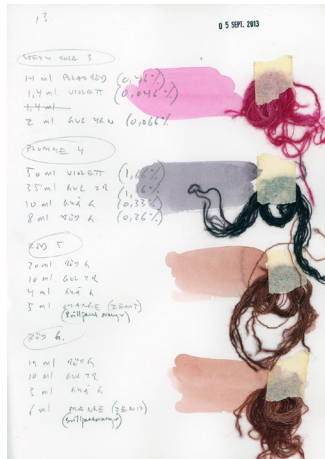 13
0 5 SEPT. 2013
3
14 ml (0,46%)
1,4 ml VIOLETT (0,046%)
1,4 ml
2 ml GUL (0,066%)
PLOMME 4
50 ml VIOLETT
35 ml GUL 2R
10 ml BLÅ G (0,33%)
8 ml RÖD G (0,26%)
RÖD 5
30 ml RÖD G
10 ml GUL 2R
4 ml BLÅ G
5 ml ORANGE (ZENIT)
(Brilljantorange)
RÖD 6.
ml RÖD G
10 ml GUL 2R
3 ml BLÅ G
6 ml ORANGE (ZENIT)
(Brilljantorange)